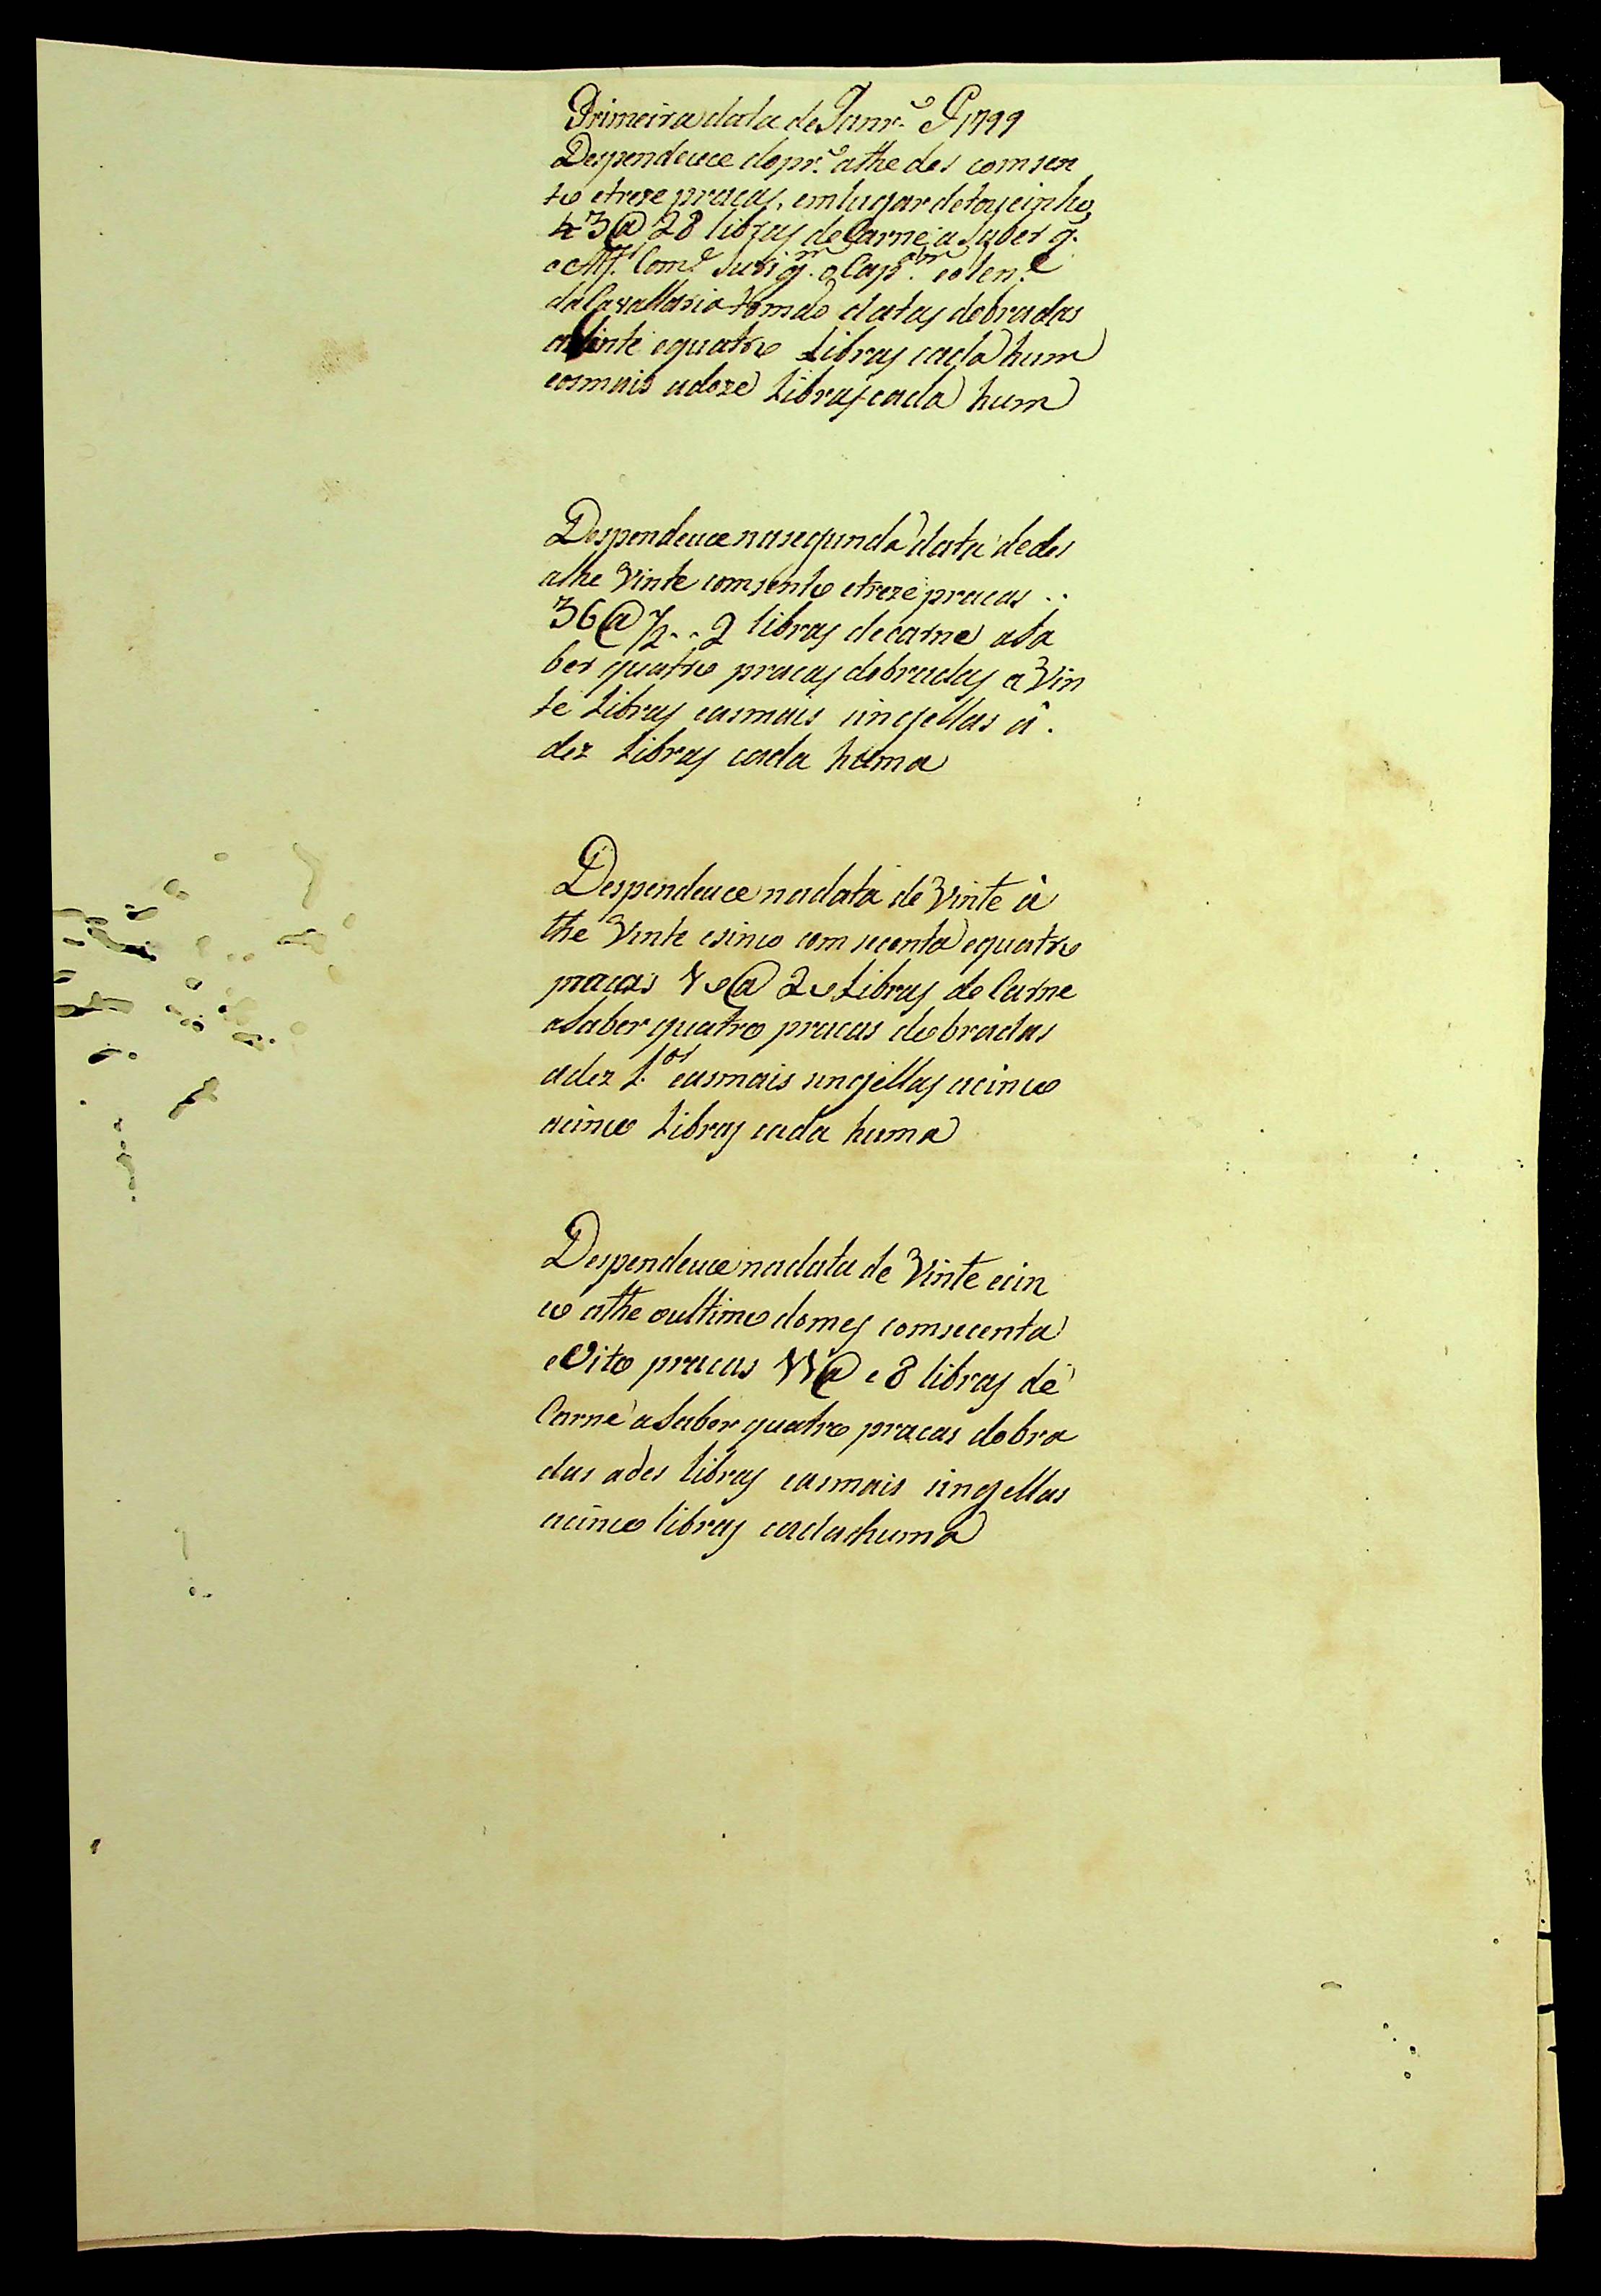 Primeira data de Janr.º D 1799
Despendeuce do pr.º athe des com sen
to e treze pracas, em lugar de toiceinho,
43@ 28 libras de Carne a Saber q.
o Com.e q. o Cap.m e o Ten.e
da Cavallaria tomão datas dobradas
a Vinte e quatro Libras cada hum
e os mais a doze Libras cada hum

Despendeuce na segunda data de des
athe Vinte com sento e treze pracas ..
36@ ½ .. 2 libras de carne a Sa
ber quatro pracas dobradas a Vin
te Libras e as mais singellas â.
dez Libras cada huma

Despendeuce na data de Vinte â
the Vinte e sinco com secenta e quatro
pracas 10@ 20 Libras de Carne
a Saber quatro pracas dobradas
a dez L.as e as mais singellas a cinco
a cinco Libras cada huma

Despendeuce na data de Vinte e cin
co athe o ultimo do mes com secenta
e Oito pracas 11@ e 8 libras de
Carne a Saber quatro pracas dobra
das a des libras e as mais singellas
a cinco libras cada huma